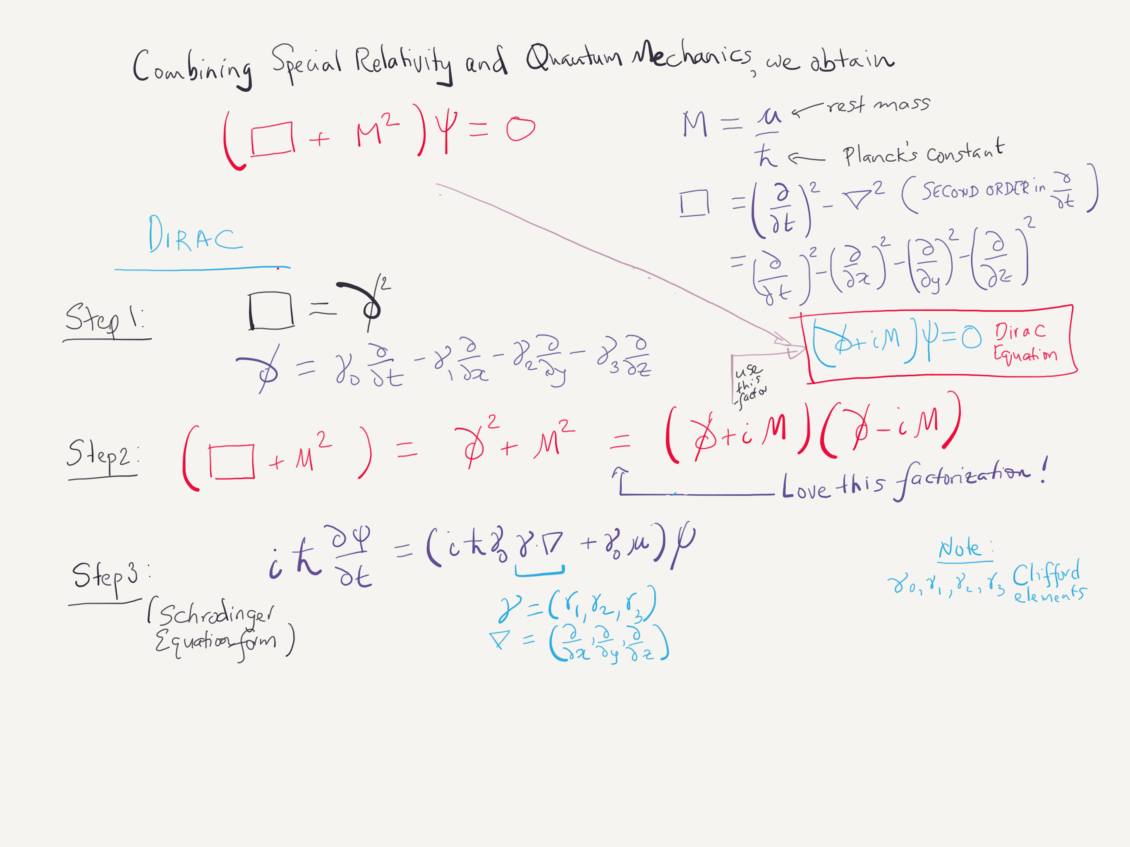 Combining Special Relativity and Quantum Mechanics, we obtain
(□ + M²)ψ = 0
M = μ/ħ
rest mass
Planck's Constant
□ = (∂/∂t)² - ∇² (SECOND ORDER in ∂/∂t)
= (∂/∂t)² - (∂/∂x)² - (∂/∂y)² - (∂/∂z)²
DIRAC
Step 1: □ = ∂̸²
∂̸ = γ₀ ∂/∂t - γ₁ ∂/∂x - γ₂ ∂/∂y - γ₃ ∂/∂z
(∂̸ + iM)ψ = 0 Dirac
Equation
use
this
factor
Step 2: (□ + M²) = ∂̸² + M² = (∂̸ + iM)(∂̸ - iM)
Love this factorization!
Step 3: iħ ∂ψ/∂t = (iħγ₀ γ·∇ + γ₀μ)ψ
(Schrodinger
Equation form)
γ = (γ₁, γ₂, γ₃)
∇ = (∂/∂x, ∂/∂y, ∂/∂z)
Note:
γ₀, γ₁, γ₂, γ₃ Clifford
elements